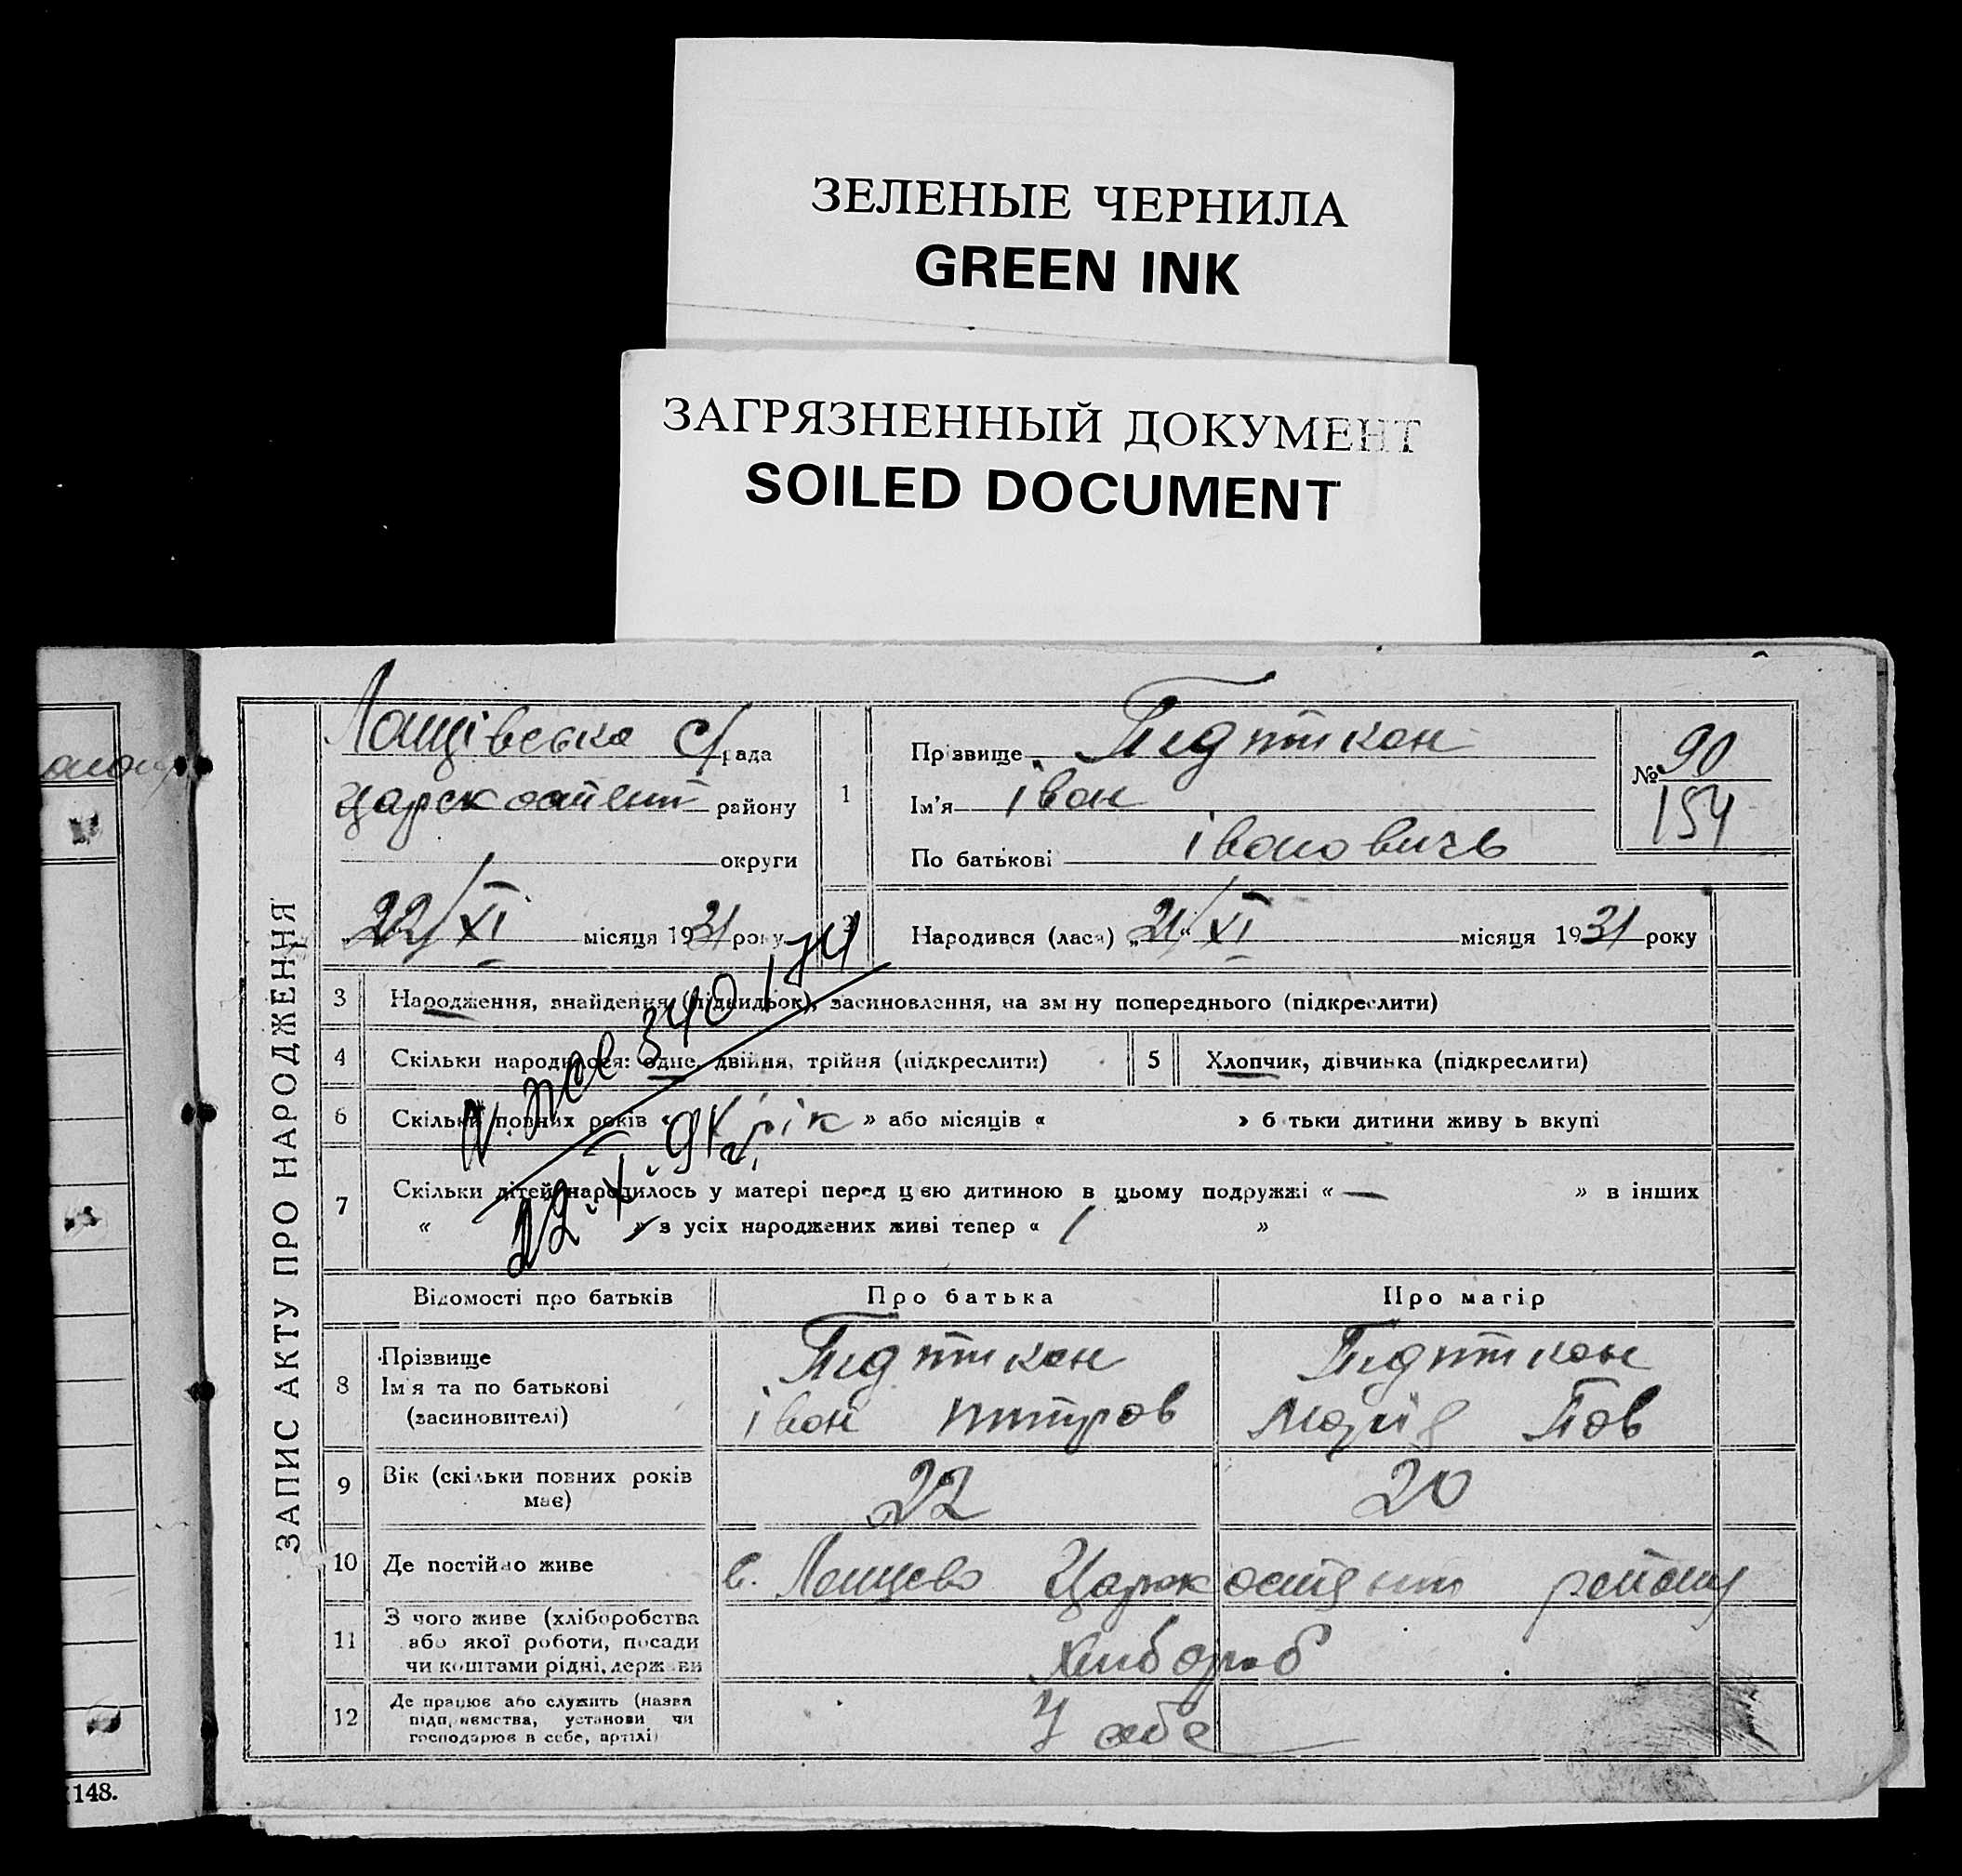 ЗЕЛЕНЫЕ ЧЕРНИЛА
GREEN INK
ЗАГРЯЗНЕННЫЙ ДОКУМЕНТ
SOILED DOCUMENT
ЗАПИС АКТУ ПРО НАРОДЖЕННЯ
Лащівська с/рада
району
округи
22/XI місяця 1931 року
1
Прізвище Підпткан
Ім'я іван
По батькові івановичь
№ 90
154
2 Народився (лася) „21/XI місяця 1931 року
3 Народження, знайдення (підкидьок), засиновлення, на зміну попереднього (підкреслити)
4 Скільки народилося: одне, двійня, трійня (підкреслити)
5 Хлопчик, дівчинка (підкреслити)
6 Скільки повних років « рік » або місяців « » батьки дитини живуть вкупі
340174
7 Скільки дітей народилось у матері перед цією дитиною в цьому подружжі « — » в інших
« » з усіх народжених живі тепер « 1 »
Відомості про батьків Про батька Про матір
8 Прізвище
Ім'я та по батькові
(засиновителі)
Підпткан
іван
Підпткан
Марія Пав
9 Вік (скільки повних років має) 22 20
10 Де постійно живе в. Лащева району
11 З чого живе (хліборобства
або якої роботи, посади
чи коштами рідні, держави
Хлибороб
12 Де працює або служить (назва
підприємства, установи чи
господарює в себе, артілі)
У себе
148.